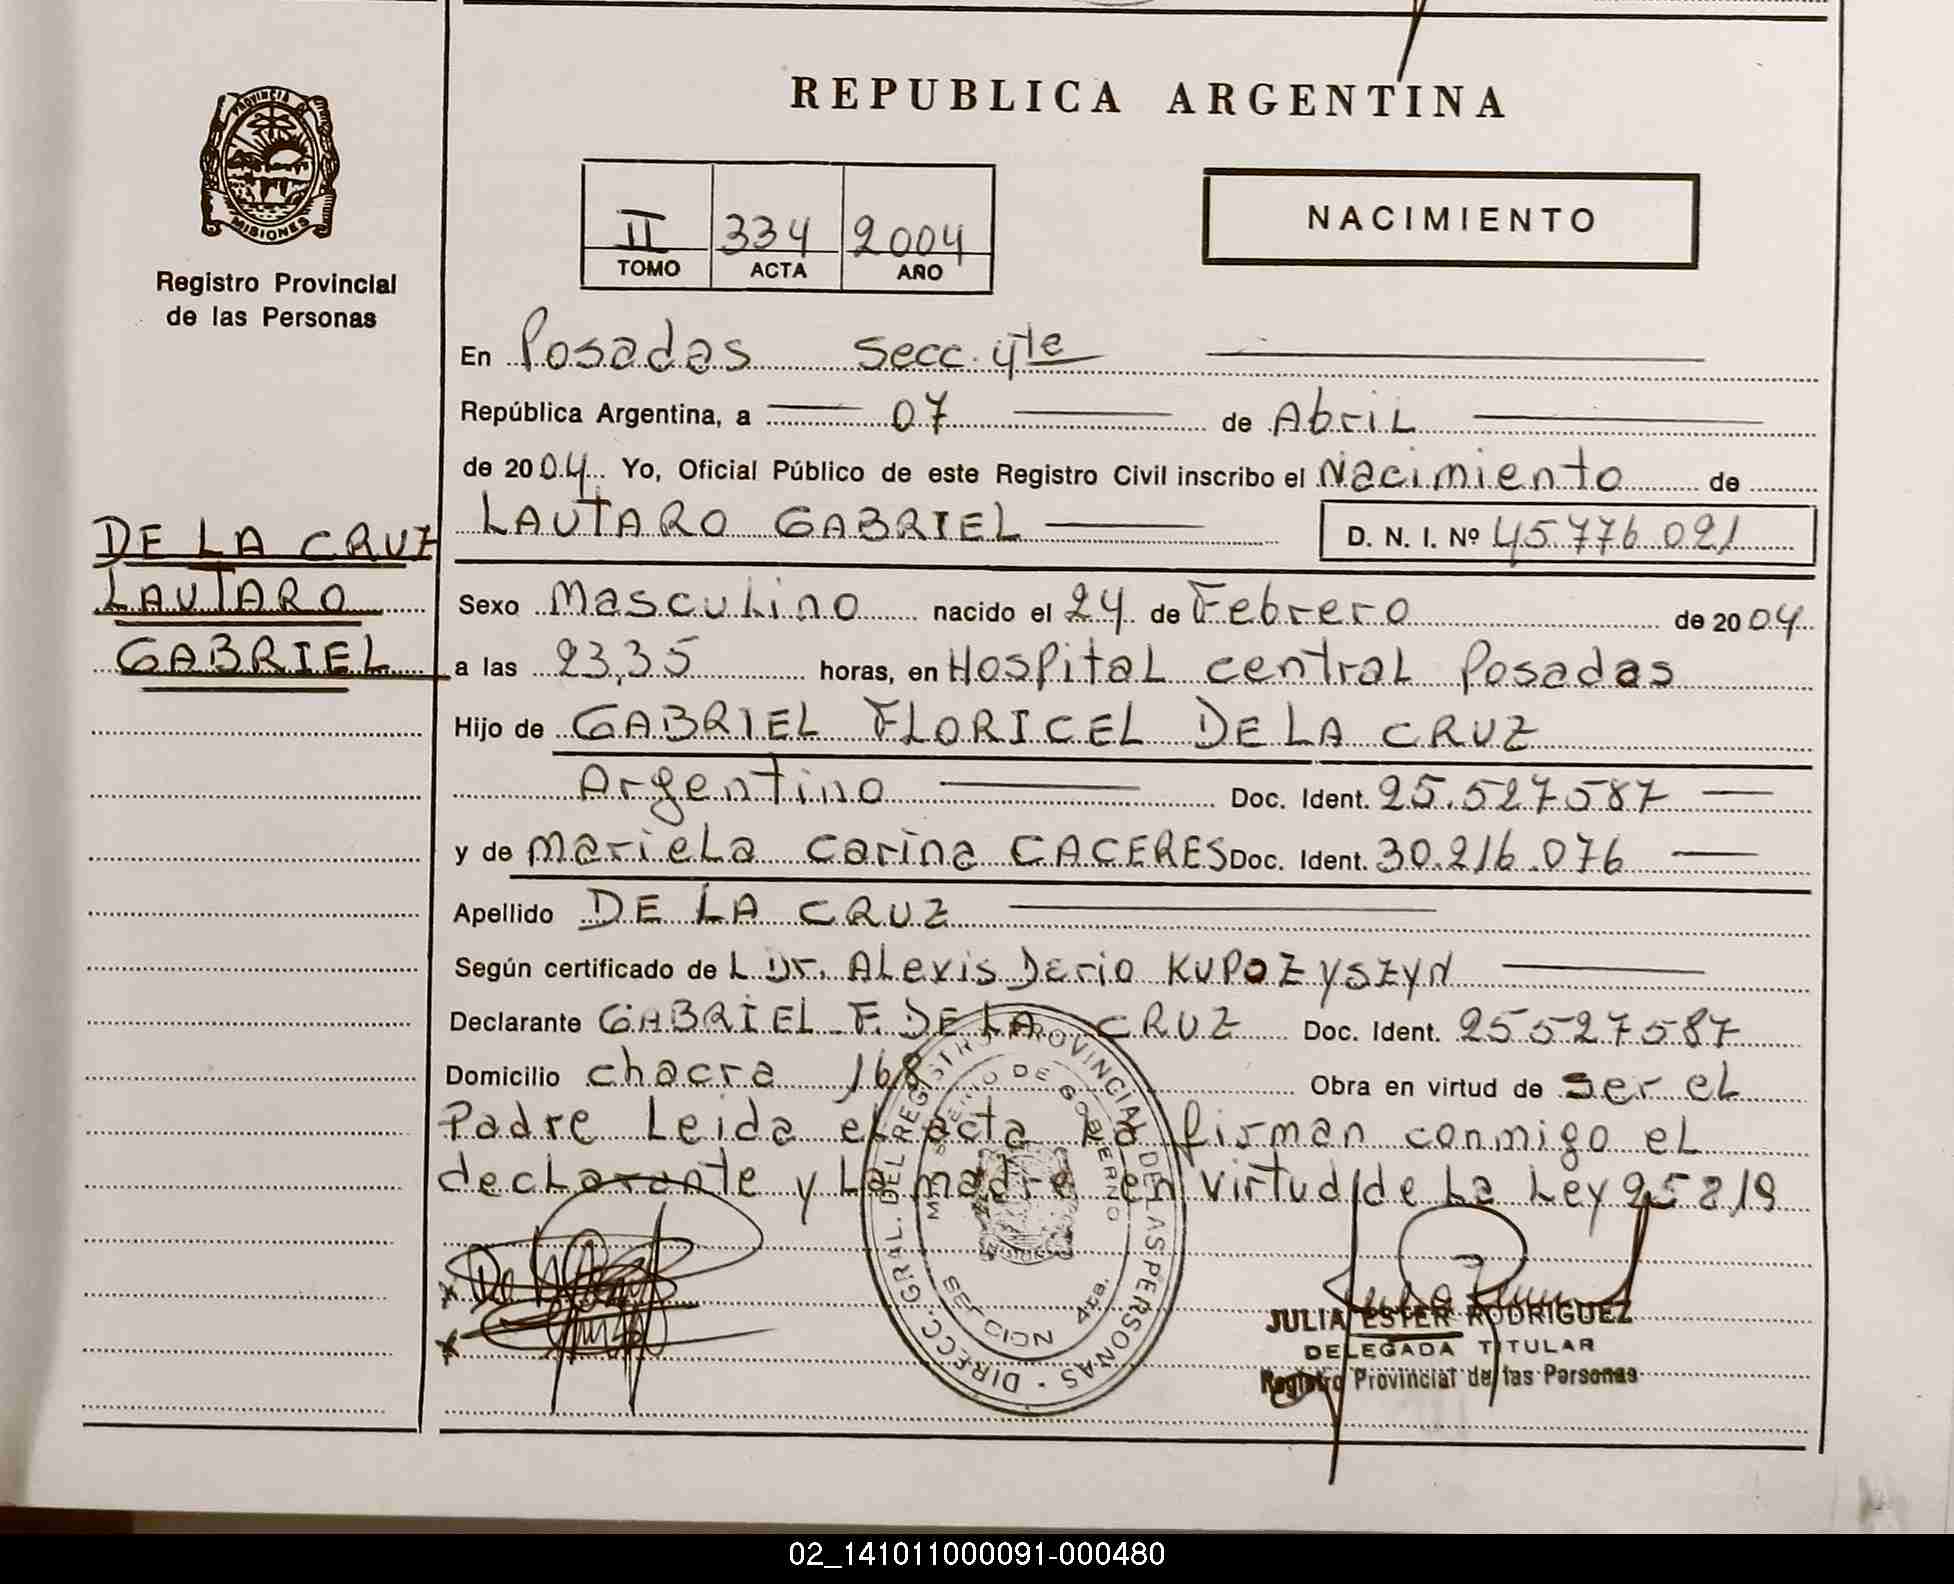 REPUBLICA ARGENTINA
PROVINCIA DE MISIONES
Registro Provincial
de las Personas
II 334 2004
TOMO ACTA AÑO
NACIMIENTO
En Posadas Secc. 4ta
República Argentina, a 07 de Abril
de 2004 Yo, Oficial Público de este Registro Civil inscribo el Nacimiento de
LAUTARO GABRIEL D. N. I. Nº 45.776.021
DE LA CRUZ
LAUTARO
GABRIEL
Sexo Masculino nacido el 24 de Febrero de 2004
a las 23,35 horas, en Hospital central Posadas
Hijo de GABRIEL FLORICEL DE LA CRUZ
Argentino Doc. Ident. 25.527587
y de Mariela Carina CACERES Doc. Ident. 30.216.076
Apellido DE LA CRUZ
Según certificado de L Dr. Alexis Dario KUPOZYSZYN
Declarante GABRIEL F. DE LA CRUZ Doc. Ident. 25527587
Domicilio chacra 168 Obra en virtud de ser el
Padre Leida el acta la firman conmigo el
declarante y la madre en virtud de la Ley 25819
DIRECC. GRAL. DEL REGISTRO PROVINCIAL DE LAS PERSONAS
MINISTERIO DE GOBIERNO
SECCION 4ta.
JULIA ESTER RODRIGUEZ
DELEGADA TITULAR
Registro Provincial de las Personas
02_141011000091-000480